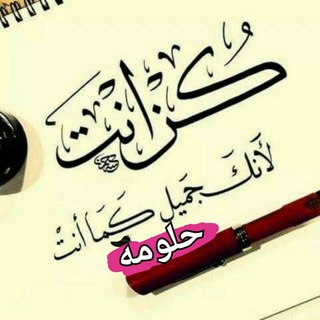 كن انت
لأنك جميل كما أنت
حلومه